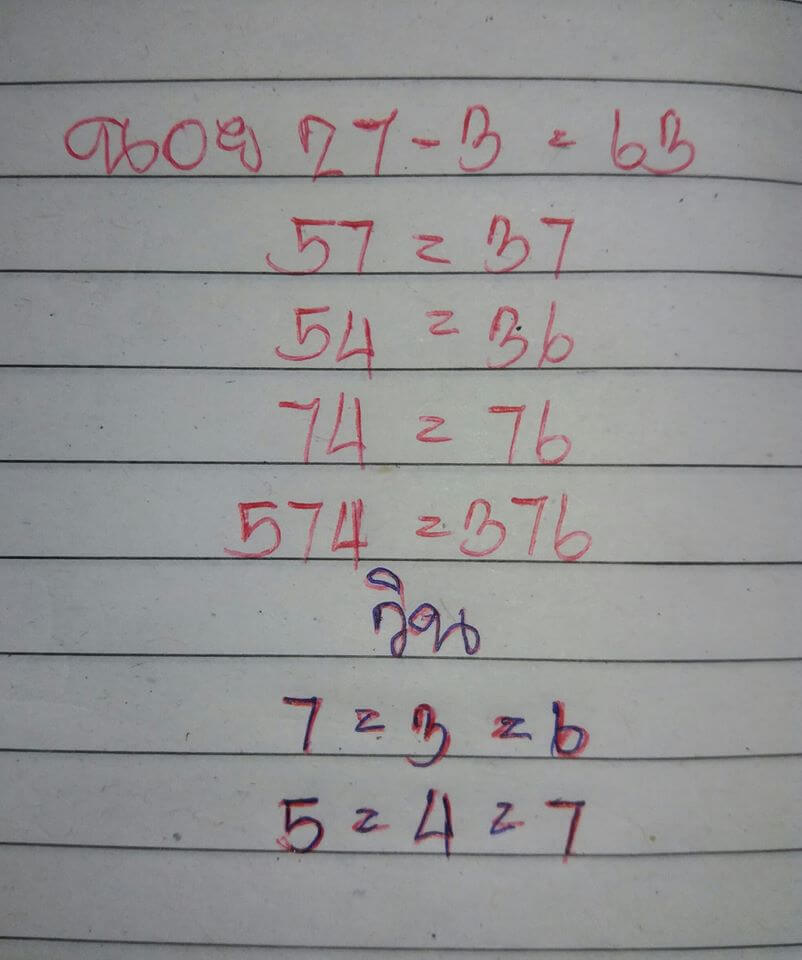 27-3 = 63
57 = 37
54 = 36
74 = 76
574 = 376
วิน
7 = 3 = 6
5 = 4 = 7